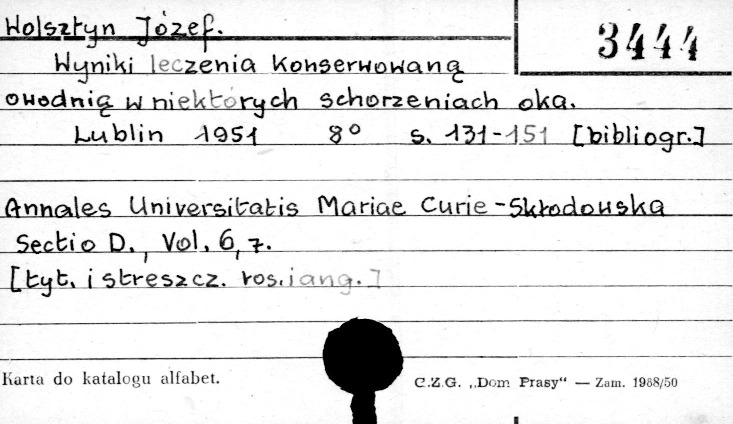 Wolsztyn Józef.
3444
Wyniki leczenia konserwowaną
owodnią w niektórych schorzeniach oka.
Lublin 1951 8° s. 131-151 [bibliogr.]
Annales Universitatis Mariae Curie-Skłodowska
Sectio D., Vol. 6, 7.
[tyt. i streszcz. ros. i ang.]
Karta do katalogu alfabet.
C.Z.G. „Dom Prasy“ — Zam. 1988/50